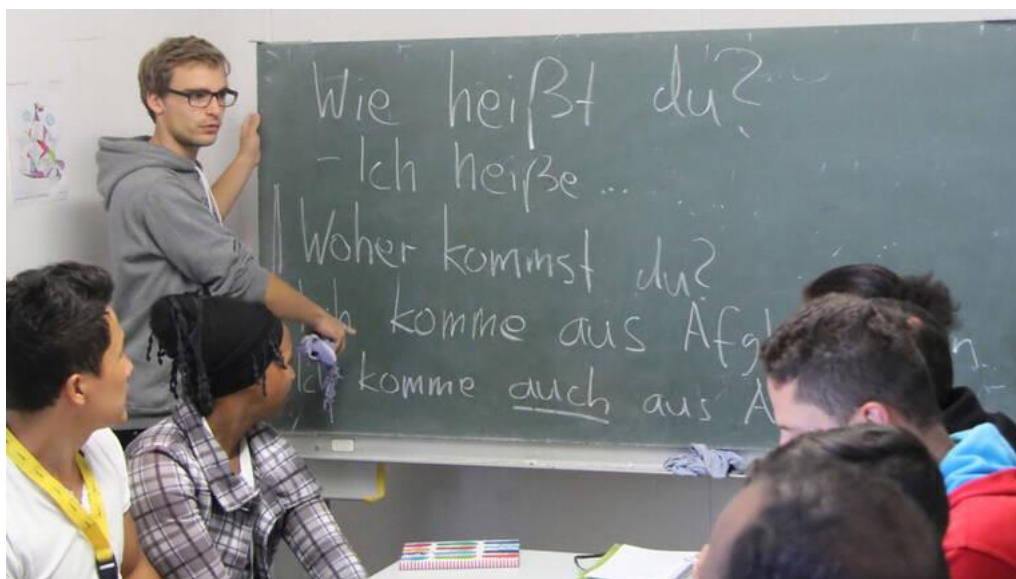 Wie heißt du?
- Ich heiße ...
Woher kommst du?
komme aus
Ich komme auch aus